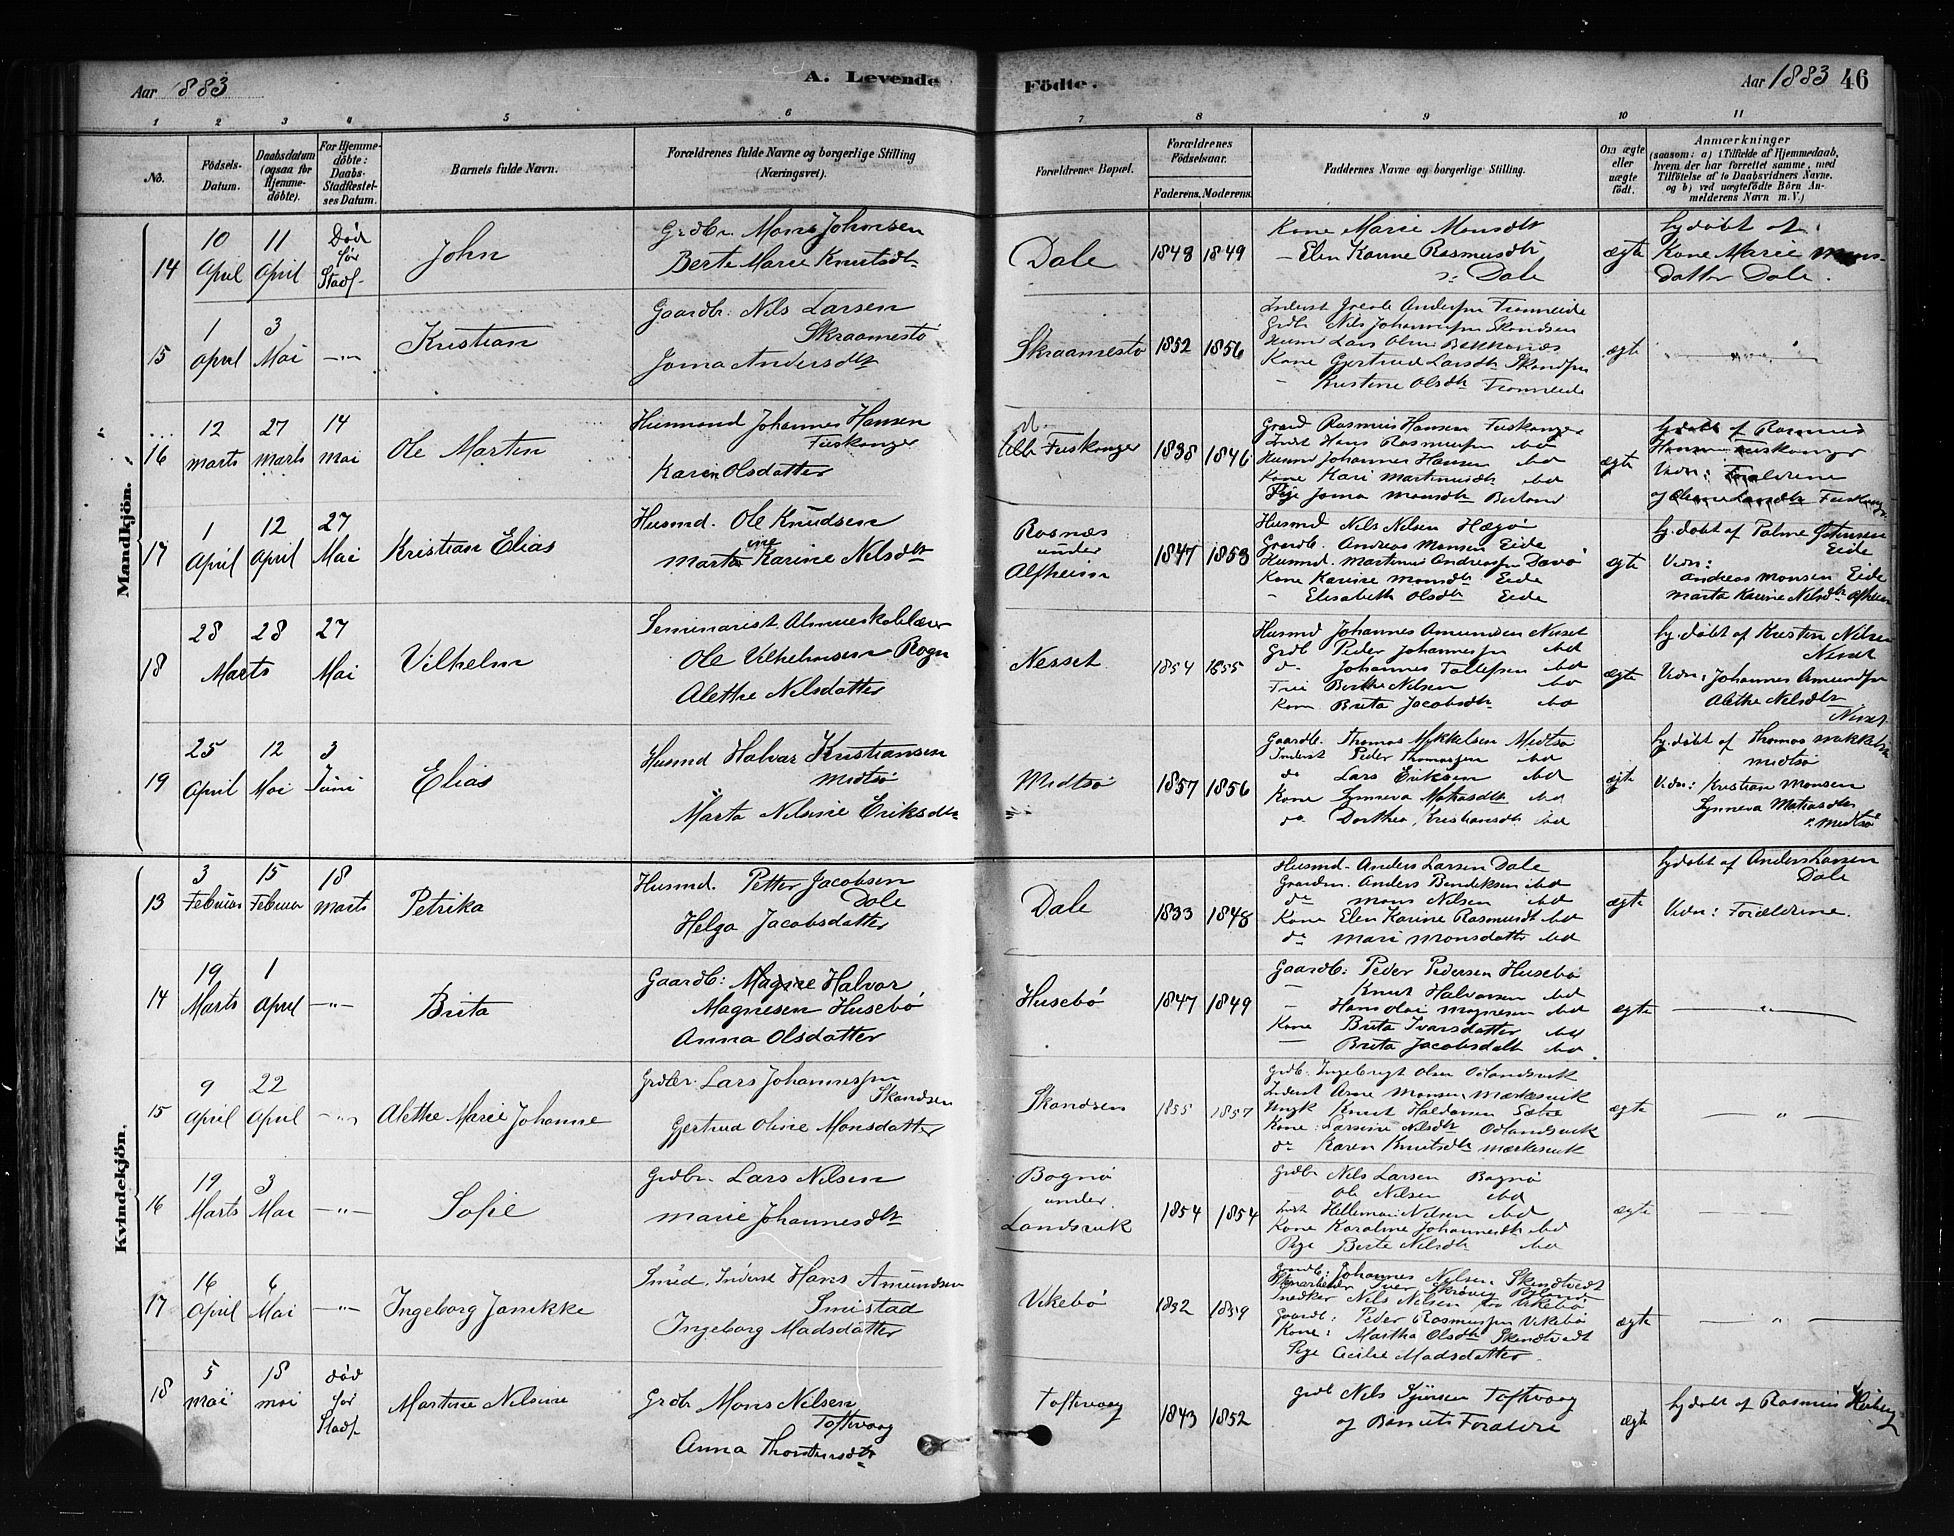 Aar 1883
A. Levende
Födte.
Aar 1883 46
1 2 3 4 5 6 7 8 9 10 11
No.
Födsels-
Datum.
Daabsdatum
(ogsaa for
Hjemme-
döbte).
For Hjemme-
döbte:
Daabs-
Stadfæstel-
ses Datum.
Barnets fulde Navn.
Forældrenes fulde Navne og borgerlige Stilling
(Næringsvei).
Forældrenes Bopæl.
Forældrenes
Födselsaar.
Faderens. Moderens.
Faddernes Navne og borgerlige Stilling.
Om ægte
eller
uægte
födt.
Anmærkninger
(saasom: a) i Tilfælde af Hjemmedaab,
hvem der har forrettet samme, med
Tilföielse af to Daabsvidners Navne,
og b) ved uægtefödte Börn An-
melderens Navn m. V.)
Mandkjön.
14
10
April
11
April
Död
før
Stadf.
John
Grdbr. Mons Johnsen
Berte Marie Knutsdtr
Dale
1848 1849
Kone Marie Monsdtr
— Elen Karine Rasmusdtr
Dale
ægte
hj.døbt af
Kone Marie Mons-
datter Dale.
15
1
April
3
Mai
—"—
Kristian
Gaardbr. Nils Larsen
Skraamestø
Joma Andersdtr
Skraamestø
1852 1856
Grdbr Nils Johannessen Skandsen
Kone Gjertrud Larsdtr Skandsen
— Kristine Olsdtr
ægte
—"—
16
12
Marts
27
Marts
14
Mai
Ole Martin
Husmand Johannes Hansen
Fuskanger
Karen Olsdatter
Fuskanger
1838 1846
Gaard Rasmus Hansen Fuskanger
Inderst Hans Rasmussen ibd
Husmd Johannes Hansen ibd
Kone Kari Martinusdtr ibd
Pige Joma Monsdtr
ægte
hj.døbt af Rasmus
Hansen Fuskanger
Vidn: Forældrene
17
1
April
12
April
27
Mai
Kristian Elias
Husmd. Ole Knudsen
Marta Karine Nilsdtr
Rosnæs
under
Alfheim
1847 1853
Husmd Nils Nilsen Hægø
Gaardb. Andreas Monsen Eide
Husmd. Martinus Andreassen Davø
Kone Karine Monsdtr Eide
— Elisabeth Olsdtr Eide
ægte
hj.døbt af Palme
Eide
Vidn:
Andreas Monsen Eide
Marta Karine Nilsdtr Alfheim
18
28
28
Marts
27
Mai
Vilhelm
Seminarist. Almueskolelærer
Ole Vilhelmsen Rogn
Alethe Nilsdatter
Nesset
1854 1855
Husmd Johannes Amundsen Nesset
Grdb Peder Johannessen ibd
d. Johannes Tollefsen ibd
Berthe Nilsen ibd
Kone Brita Jacobsdtr ibd
ægte
hj.døbt af Kristen Nilsen
Nesset
Vidn: Johannes Amundsen
Alethe Nilsdtr
Nesset
19
25
April
12
Mai
3
Juni
Elias
Husmd Halvar Kristiansen
Midtsø
Marta Nilsine Eriksdtr
Midtsø
1857 1856
Gaardb. Thomas Mikkelsen Midtsø
Inderst Peder Thomassen ibd
do Lars Eriksen ibd
Kone Synneva Matiasdtr ibd
do Dorthea Kristiansdtr ibd
ægte
hj.døbt af Thomas Mikkelsen
Midtsø
Vidn: Kristian Monsen
Synneva Matiasdtr
Midtsø
Kvindekjön.
13
3
Februar
15
Februar
18
Marts
Petrika
Husmd. Petter Jacobsen
Dale
Helga Jacobsdatter
Dale
1833 1848
Husmd. Anders Larsen Dale
Gaardm. Anders Bendiksen ibd
do Mons Nilsen ibd
Kone Elen Karine Rasmusdtr ibd
do Mari Monsdatter ibd
ægte
hj.døbt af Anders Larsen
Dale
Vidn: Forældrene.
14
19
Marts
1
April
—"—
Brita
Gaardb: Halvor
Magnesen Husebö
Anna Olsdatter
Husebö
1847 1849
Gaardb: Peder Pedersen Husebö
— Knut Halvorsen ibd
— Hans Olai Magnesen ibd
Kone Brita Ivarsdatter ibd
— Brita Jacobsdatt ibd.
ægte
—"—
15
9
April
22
April
—"—
Alethe Marie Johanne
Grdbr. Lars Johannessen
Skandsen
Gjertrud Oline Monsdatter
Skandsen
1855 1857
Grdb. Ingebrigt Olsen Odlandsvik
Inderst Arne Monsen Mærkesvik
Ungk Knut Haldorsen Sætre
Kone: Larsine Nilsdtr Odlandsvik
do Karen Knutsdtr Mærkesvik
ægte
—"—
16
19
Marts
3
Mai
—"—
Sofie
Grdbr. Lars Nilsen
Marie Johannesdtr
Bognø
under
Landsvik
1854 1854
Grdbr Nils Larsen Bognø
— Ole Nilsen ibd
Inderst Nilsen ibd
Kone Karoline Johannesdtr ibd
Pige Berte Nilsdtr ibd
ægte
17
16
April
6
Mai
—"—
Ingeborg Janikke
Smed, Inderst Hans Amundsen
Smistad
Ingeborg Madsdatter
Vikebø
1832 1839
Gaardb: Johannes Nilsen Skendtvedt
Snedker Nils Nilsen Vikebø
Gaardb: Peder Rasmussen Vikebø
Kone: Martha Olsdtr Skendtvedt
Pige Cecilie Madsdatter.
ægte
—"—
18
5
Mai
18
Mai
død
før
Stadf.
Martine Nilsine
Grdb Mons Nilsen
Toftvaag
Anna Thorstensdtr
Toftevaag
1843 1852
Grdb Nils Sjursen Toftvaag
og Barnets Forældre
ægte
hj.døbt af Rasmus